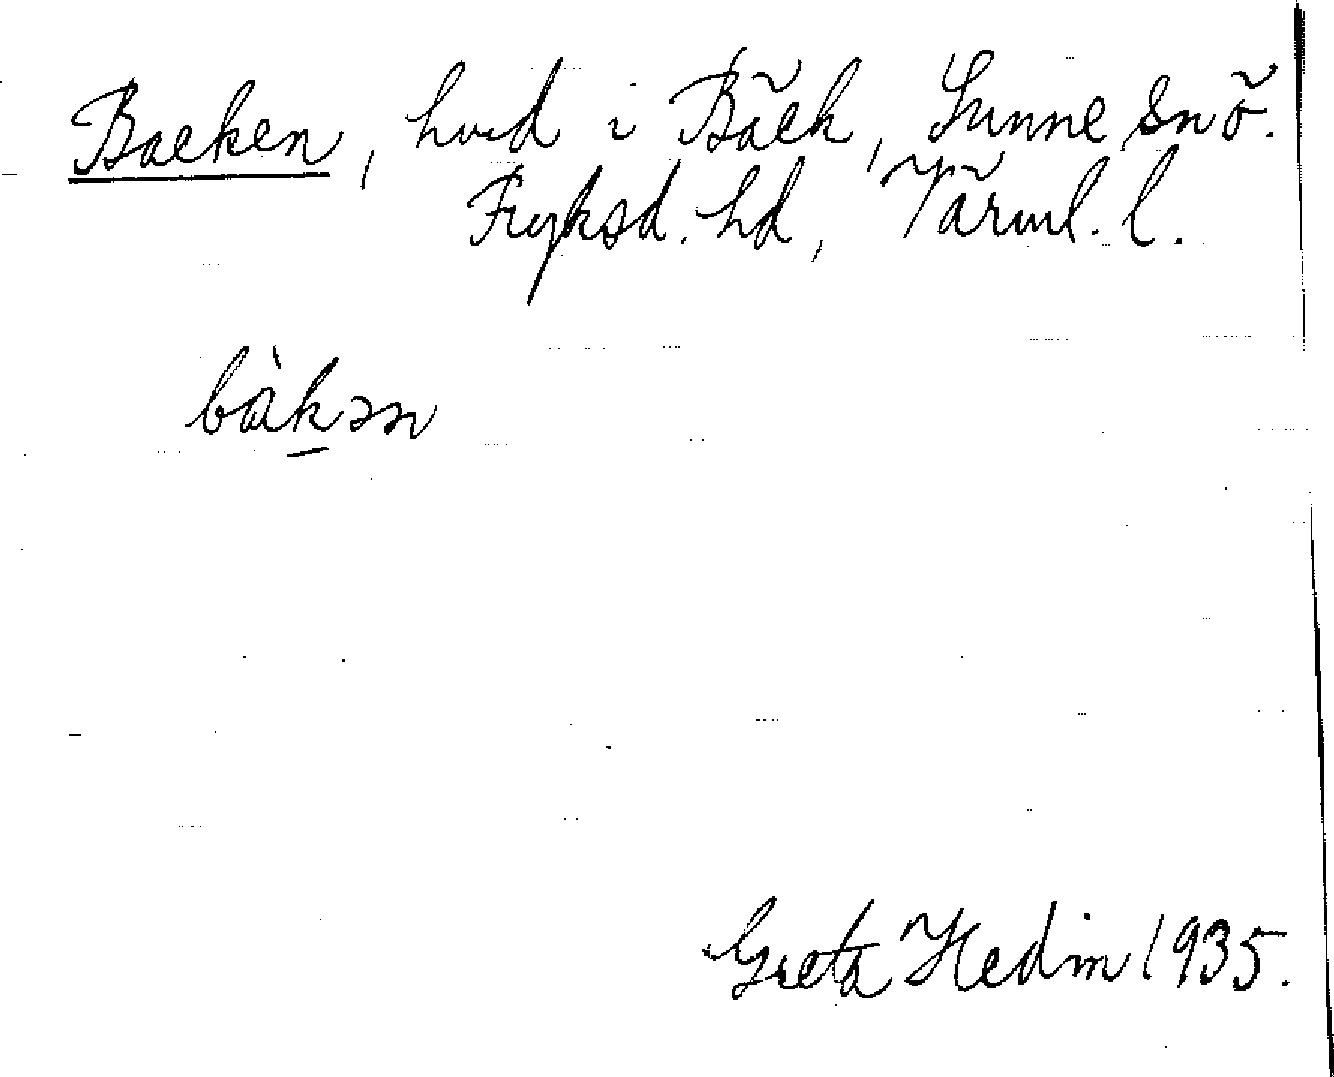 Backen, hvd i Bäck, Sunne snö.
Fryksd. hd, Värml. l.
bàkən
Greta Hedin 1935.